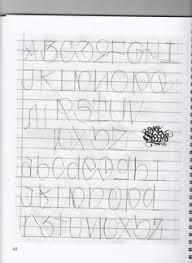 ABCDEFGHI
JKLMNOPQ
RSTUV
WXYZ
abcdefghi
jklmnopq
rstuvwxyz